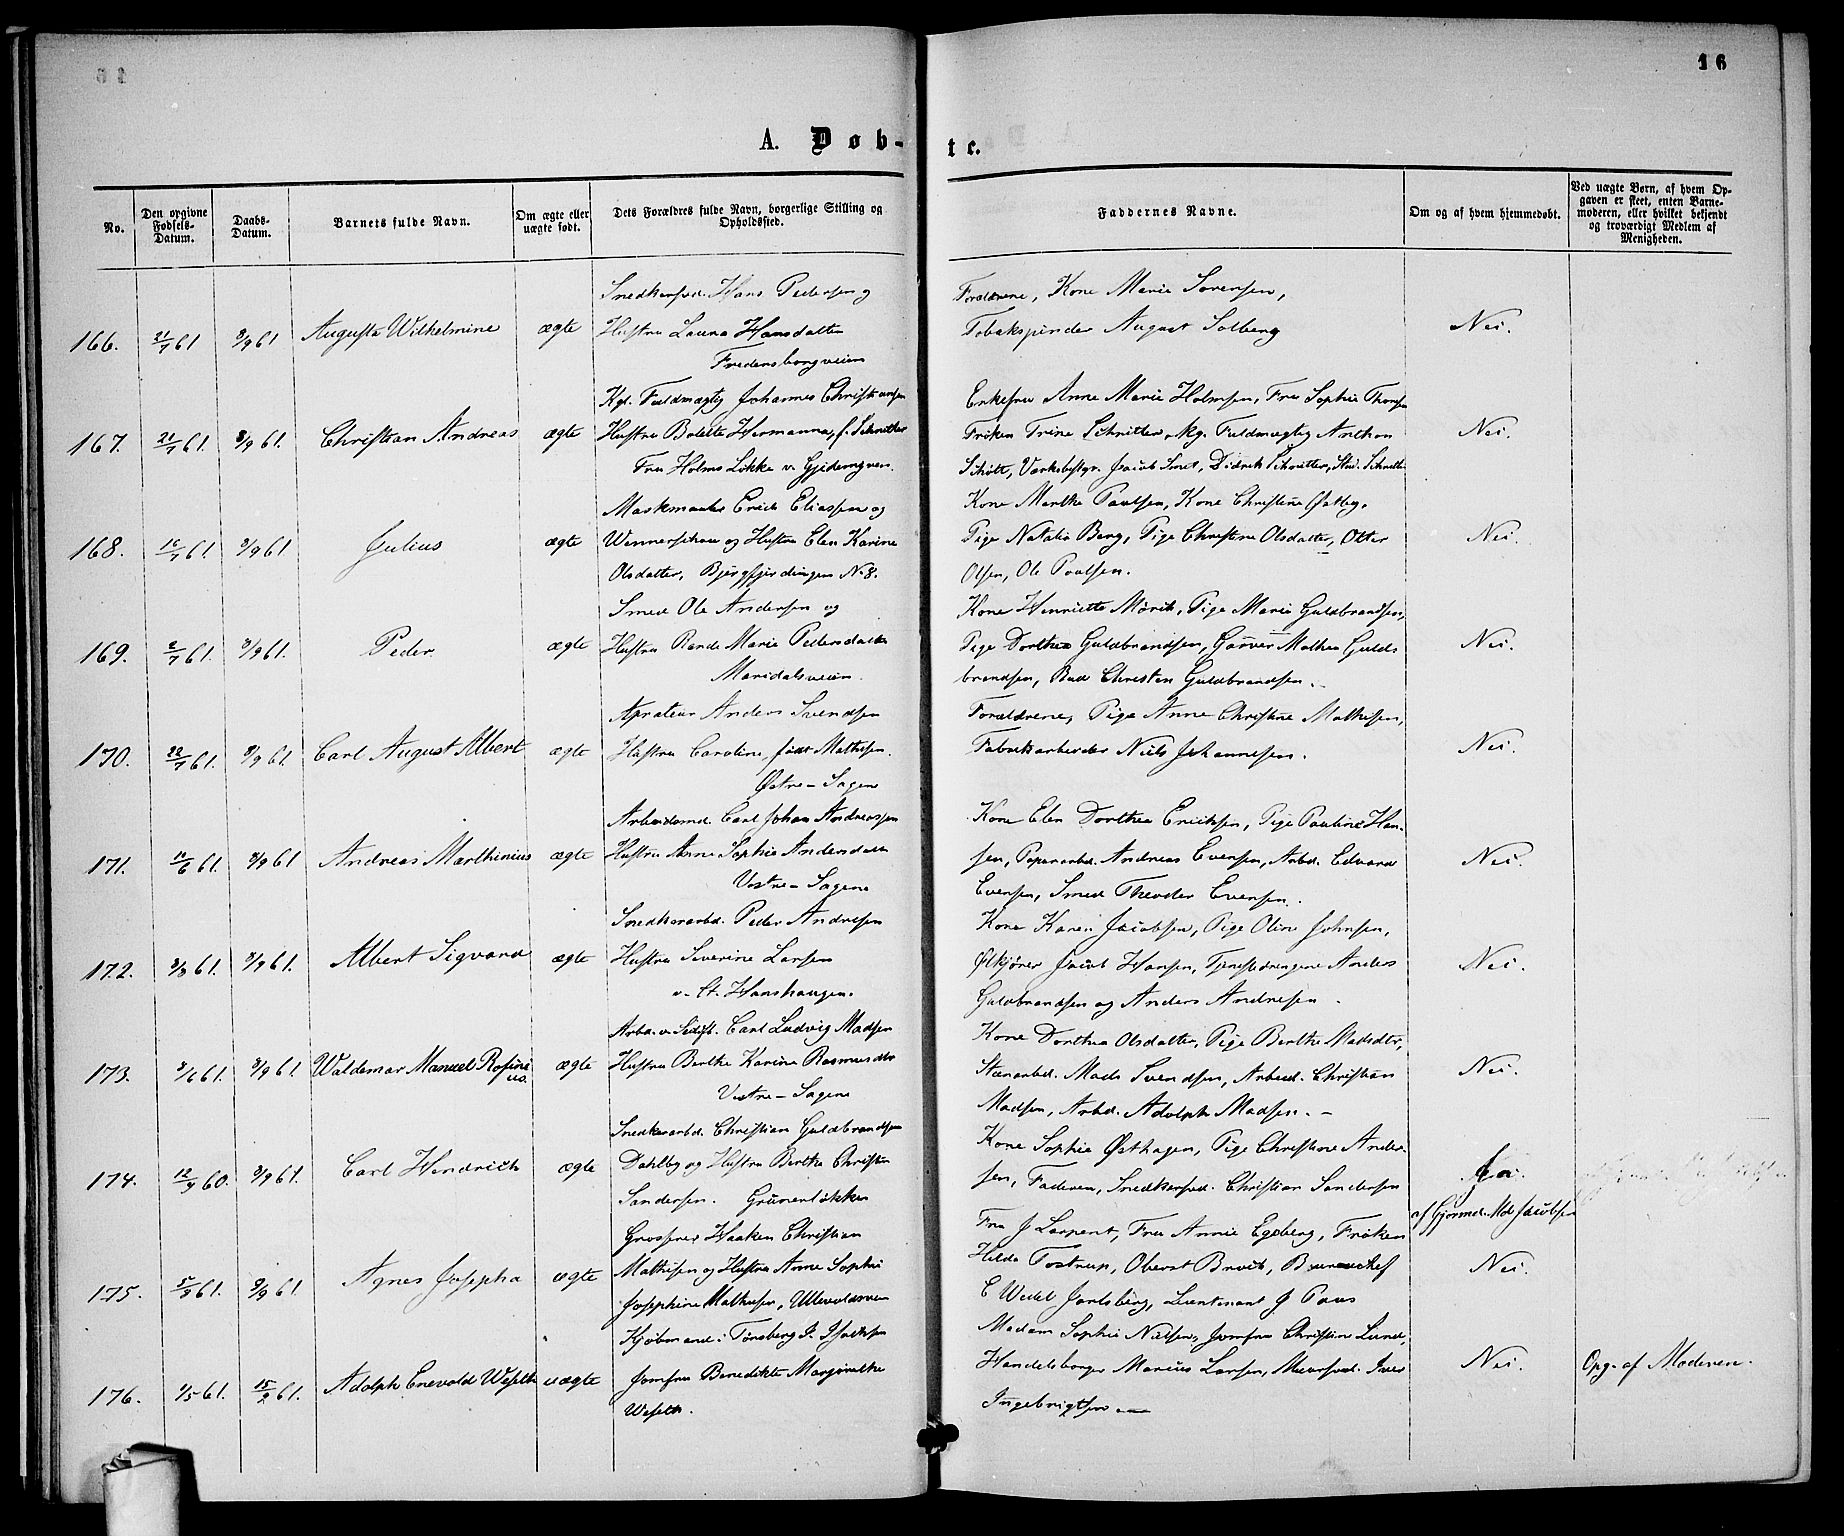 16
A. Døb-
te.
No.
Den opgivne Fødsels-Datum.
Daabs-Datum.
Barnets fulde Navn.
Om ægte eller uægte født.
Dets Forældres fulde Navn, borgerlige Stilling og Opholdssted.
Faddernes Navne.
Om og af hvem hjemmedøbt.
Ved uægte Børn, af hvem Opgaven er skeet, enten Barnemoderen, eller hvilket bekjendt og troværdigt Medlem af Menigheden.
Snedkersvd. Hans Pedersen og
Forældrene, Kone Marie Sørensen,
166. 21/7 61 8/9 61 Augusta Wilhelmine ægte Hustru Laura Hansdatter
Tobakspinder August Solberg Nei.
Fredensborgveien
Kgl. Fuldmægtig Johannes Christiansen
Enkefru Anne Marie Holmsen, Fru Sophie Thomsen
167. 21/7 61. 8/9 61. Christian Andreas ægte Hustru Bolette Hermanna, f. Schnitler
Frøken Trine Schnitler, kg. Fuldmægtig Anthon Nei.
Fru Holms Løkke v. Gjdemyren.
Schøtt, Værksbestyr. Jacob Smit, Didrik Schnitler, Stud. Schnitler
Maskmester Erick Eliassen og
Kone Marthe Paulsen, Kone Christine Østbye,
168. 16/7 61. 8/9 61 Julius ægte Wennersihou og Hustru Elen Karine
Pige Natalia Berg, Pige Christine Olsdatter, Otter Nei.
Olsdatter, Bjergfjerdingen N. 8.
Olsen, Ole Paulsen.
Smed Ole Andersen og
Kone Henriette Mørik, Pige Maria Guldbrandsen,
169. 2/7 61. 8/9 61. Peder ægte Hustru Rande Marie Pedersdatter
Pige Dorthea Guldbrandsen, Garver Mathea Gulds Nei.
Maridalsveien.
brandsen, Bud Christen Guldbrandsen.
Aprateur Anders Svendsen
Forældrene, Pige Anne Christine Mathisen,
170. 22/7 61. 8/9 61. Carl August Albert ægte Hustru Caroline, født Mathisen.
Fabrikarbeider Niels Johannesen. Nei.
Østre-Sagene
Arbeidsmd. Carl Johan Andreassen
Kone Elen Dorthea Eriksen, Pige Pauline Han-
171. 10/6 61. 8/9 61. Andreas Marthinius ægte Hustru Anne Sophie Andersdatter
sen, Papirarbd. Andreas Evensen, Arbd. Edvard Nei.
Vestre-Sagene
Evensen, Smed Theodor Evensen.
Snedkerarbd. Peder Andresen
Kone Karen Jacobsen, Pige Oline Johnsen,
172. 3/8 61. 8/9 61. Albert Sigvard ægte Hustru Severine Larsen
Ølkjører Jacob Hansen, Tjenestedrengene Anders Nei.
v. St. Hanshaugen.
Guldbrandsen og Anders Andresen.
Arbd. v. Seilft. Carl Ludvig Madsen
Kone Dorthea Olsdatter, Pige Berthe Madsdtr,
173. 3/6 61. 8/9 61. Waldemar Manuel Rosinius ægte Hustru Berthe Karine Rasmusdtr
Stenarbd. Mads Svendsen, Arbeid. Christian Nei.
Vestre-Sagene
Madsen, Arbd. Adolph Madsen. -
Snedkerarbd. Christian Guldbrandsen
Kone Sophie Østhagen, Pige Christine Ander-
174. 12/9 60. 8/9 61. Carl Hendrich ægte Dahlby og Hustru Berthe Christin
sen, Faderen, Snedkersvd. Christian Sandersen Ja.
Sandersen. Grünerløkken
af Gjormd. Md Jacobsen
Grosserer Haaken Christian
Fru J Larpent, Fru Annie Egeberg, Frøken
175. 15/3 61. 9/9 61. Agnes Josepha ægte Mathisen og Hustru Anne Sophie
Hilda Tostrup, Oberst Broch, Bureauchef Nei.
Josephine Mathisen, Ullevoldsveien
C Wedel Jarlsberg, Lieutenant J Paus
Kjøbmand i Tønsberg P. Isachsen
Madam Sophie Nielsen, Jomfru Christine Lund,
176. 9/5 61. 15/9 61. Adolph Enevold Weseth uægte Jomfru Benedikte Margrethe
Handelsborger Marius Larsen, Muursvd. Iver Nei. Opg. af Moderen.
Weseth.
Ingebrigtsen